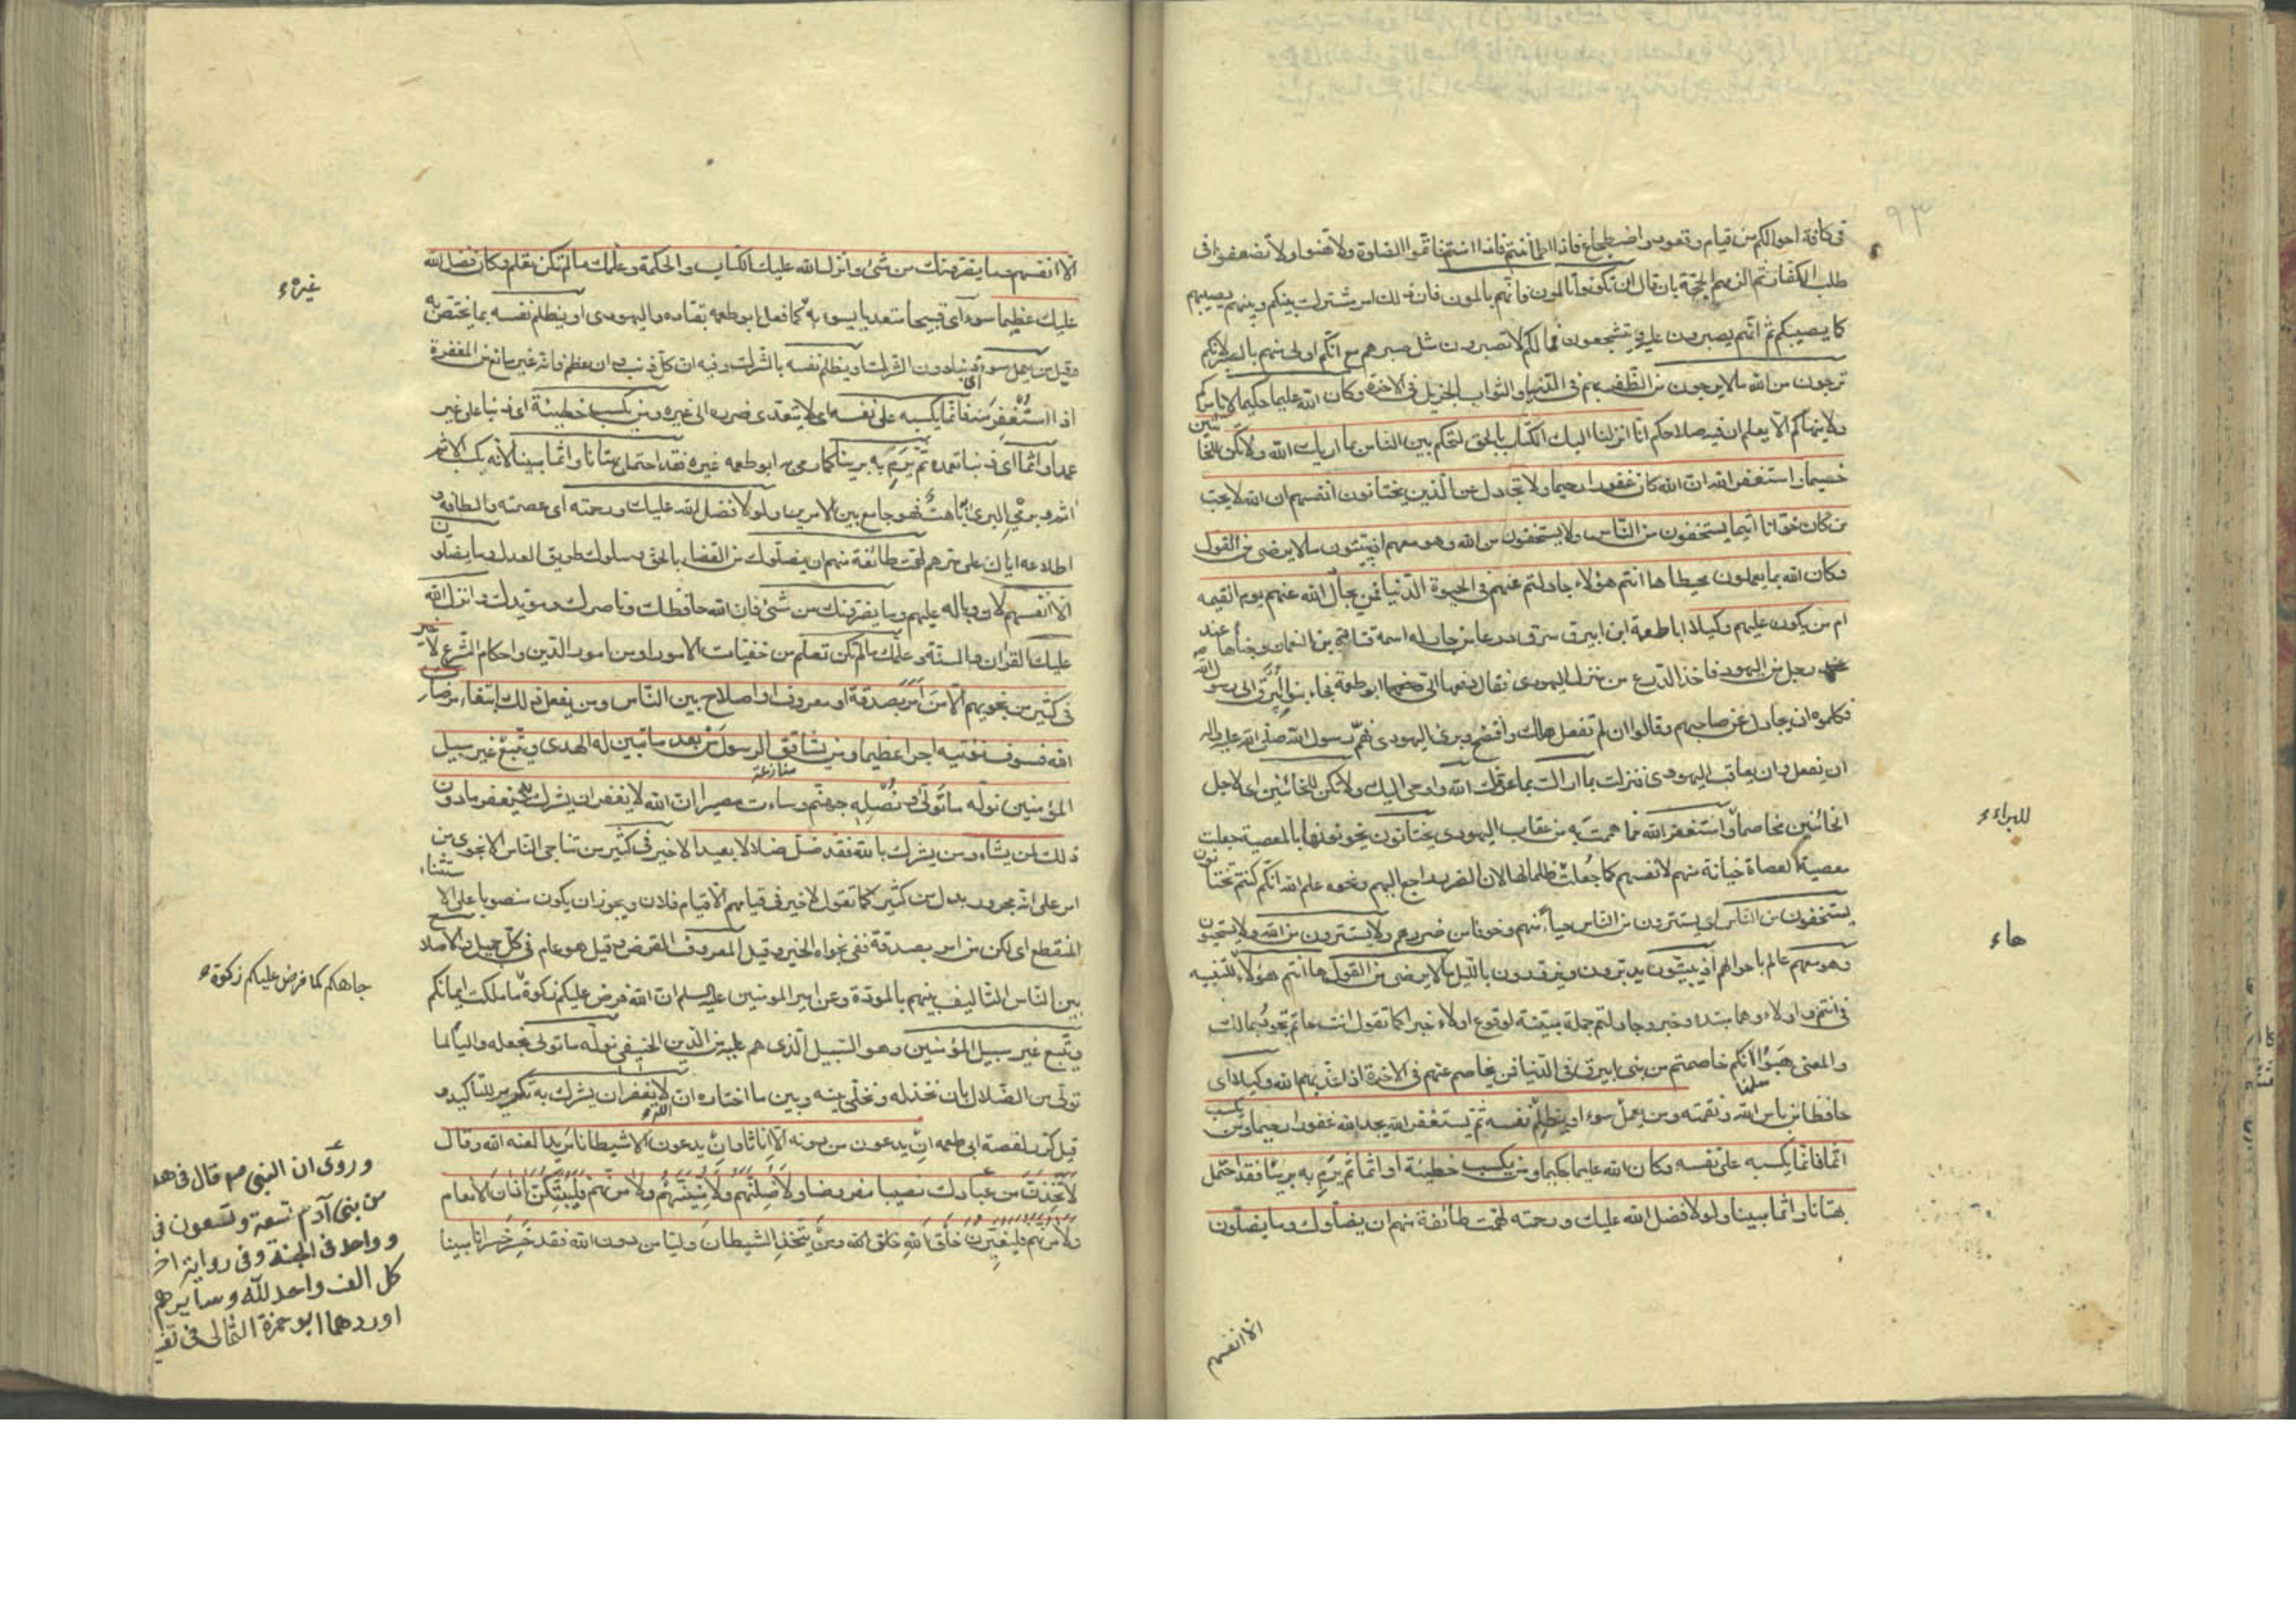 ٩٣
فى كافة احوالكم من قيام وقعود واضطجاع فاذا اطمأننتم فاذا استم فاتموا الصلوة ولا تهنوا ولا تضعفوا فى
طلب الكفار ثم الزمهم الحجة بان قال ان تكونوا تألمون فانهم يألمون فان ذلك امر مشترك بينكم وبينهم يصيبهم
كما يصيبكم ثم انهم يصبرون عليه ويتشجعون فما لكم لا تصبرون مثل صبرهم مع انكم اولى منهم بالصبر لانكم
ترجون من الله ما لا يرجون من الظفر بهم فى الدنيا والثواب الجزيل فى الاخرة وكان الله عليما حكيما لا يامركم
ولا ينهاكم الا بما يعلم ان فيه صلاحكم انا انزلنا اليك الكتاب بالحق لتحكم بين الناس بما اريك الله ولا تكن للخائنين
خصيما واستغفر الله ان الله كان غفورا رحيما ولا تجادل عن الذين يختانون انفسهم ان الله لا يحب
من كان خوانا اثيما يستخفون من الناس ولا يستخفون من الله وهو معهم اذ يبيتون ما لا يرضى من القول
وكان الله بما يعملون محيطا ها انتم هؤلاء جادلتم عنهم فى الحيوة الدنيا فمن يجادل الله عنهم يوم القيمه
ام من يكون عليهم وكيلا ابا طعمة ابن ابيرق سرق درعا من جار له اسمه قتادة بن النعمان وخباها عند
رجل من اليهود فاخذ الدرع من منزل اليهودى فقال دفعها الى ابو طعمة فجاء بنو ابيرق الى رسول الله
فكلموه ان يجادل عن صاحبهم وقالوا ان لم تفعل هلك وافتضح وبرئ اليهودى فهم رسول الله صلى الله عليه واله
ان يفعل وان يعاقب اليهودى فنزلت بما اراك بما عرفك الله واوحى اليك ولا تكن للخائنين اى لاجل
الخائنين مخاصما واستغفر الله مما هممت به من عقاب اليهودى يختانون يخونونها بالمعصية جعلت
معصية العصاة خيانة منهم لانفسهم كما جعلت ظلما لها لان الضرر راجع اليهم ونحوه علم الله انكم كنتم تختانون
يستخفون من الناس اى يستترون من الناس حياء منهم وخوفا من ضررهم ولا يستترون من الله ولا يستحيون
وهو معهم عالم باحوالهم اذ يبيتون يدبرون ويزورون بالليل ما لا يرضى من القول ها انتم هؤلاء ها للتنبيه
فى انتم واولاء وهما مبتدء وخبر وجادلتم جملة مبينة لوقوع اولاء خبرا كما تقول انت حاتم تجود بمالك
والمعنى هبوا انكم خاصمتم من بنى ابيرق فى الدنيا فمن يخاصم عنهم فى الاخرة اذا عذبهم الله وكيلا اى
حافظا من باس الله ونقمته ومن يعمل سوءا او يظلم نفسه ثم يستغفر الله يجد الله غفورا رحيما ومن يكسب
اثما فانما يكسبه على نفسه وكان الله عليما حكيما ومن يكسب خطيئة او اثما ثم يرم به بريئا فقد احتمل
بهتانا واثما مبينا ولولا فضل الله عليك ورحمته لهمت طائفة منهم ان يضلوك وما يضلون
الا انفسهم
للبراءء
هاء
الا انفسهم وما يضرونك من شئ وانزل الله عليك الكتاب والحكمة وعلمك ما لم تكن تعلم وكان فضل الله
عليك عظيما سوءا اى قبيحا متعديا يسوء به كما فعل ابو طعمه بقتاده واليهودى او يظلم نفسه بما يختص به
وقيل من يعمل سوءا اى ذنبا دون الشرك او يظلم نفسه بالشرك وفيه ان كل ذنب وان عظم فانه غير مانع من المغفرة
اذا استغفر منه فانما يكسبه على نفسه اى لا يتعدى ضرره الى غيره ومن يكسب خطيئة اى ذنبا على غير
عمد او اثما اى ذنبا تعمده ثم يرم به بريئا كما رمى به ابو طعمه غيره فقد احتمل بهتانا واثما مبينا لانه يكسب الاثم
اثم وبرمى البرى باهت فهو جامع بين الامرين ولولا فضل الله عليك ورحمته اى عصمته والطافه و
اطلاعه اياك على سرهم لهمت طائفة منهم ان يضلوك من القضاء بالحق وسلوك طريق العدل وما يضلون
الا انفسهم لان وباله عليهم وما يضرونك من شئ فان الله حافظك وناصرك ومؤيدك وانزل الله
عليك القران والسنة وعلمك ما لم تكن تعلم من خفيات الامور او من امور الدين واحكام الشرع لا خير
فى كثير من نجويهم الا من امر بصدقة او معروف او اصلاح بين الناس ومن يفعل ذلك ابتغاء مرضات
الله فسوف نؤتيه اجرا عظيما ومن يشاقق الرسول من بعد ما تبين له الهدى ويتبع غير سبيل
المؤمنين نوله ما تولى ونصله جهنم وساءت مصيرا ان الله لا يغفر ان يشرك به ويغفر ما دون
ذلك لمن يشاء ومن يشرك بالله فقد ضل ضلالا بعيدا لا خير فى كثير من تناجى الناس الا نجوى من
امر على انه مجرور بدل من كثير كما تقول لا خير فى قيامهم الا قيام فلان ويجوز ان يكون منصوبا على الاستثناء
المنقطع اى لكن من امر بصدقة ففى نجواه الخير وقيل المعروف القرض وقيل هو عام فى كل جميل والاصلاح
بين الناس التاليف بينهم بالمودة وعن امير المومنين عليه السلم ان الله فرض عليكم زكوة ما ملكت ايمانكم
ويتبع غير سبيل المؤمنين وهو السبيل الذى هم عليه من الدين الحنيفى نوله ما تولى نجعله واليا لما
تولى من الضلال بان نخذله ونخلى بينه وبين ما اختاره ان الله لا يغفر ان يشرك به تكرير للتاكيد و
قيل كرر لقصة ابى طعمه ان يدعون من دونه الا اناثا وان يدعون الا شيطانا مريدا لعنه الله وقال
لاتخذن من عبادك نصيبا مفروضا ولاضلنهم ولامنينهم ولامرنهم فليبتكن اذان الانعام
ولامرنهم فليغيرن خلق الله ومن يتخذ الشيطان وليا من دون الله فقد خسر خسرانا مبينا
منازعة
غيره
جاهكم كما فرض عليكم زكوة
وروى ان النبى ص قال فى هذ
من بنى آدم تسعة وتسعون فى
وواحد فى الجنة وفى رواية اخ
كل الف واحد لله وسايرهم
اوردهما ابو حمزة الثمالى فى تف